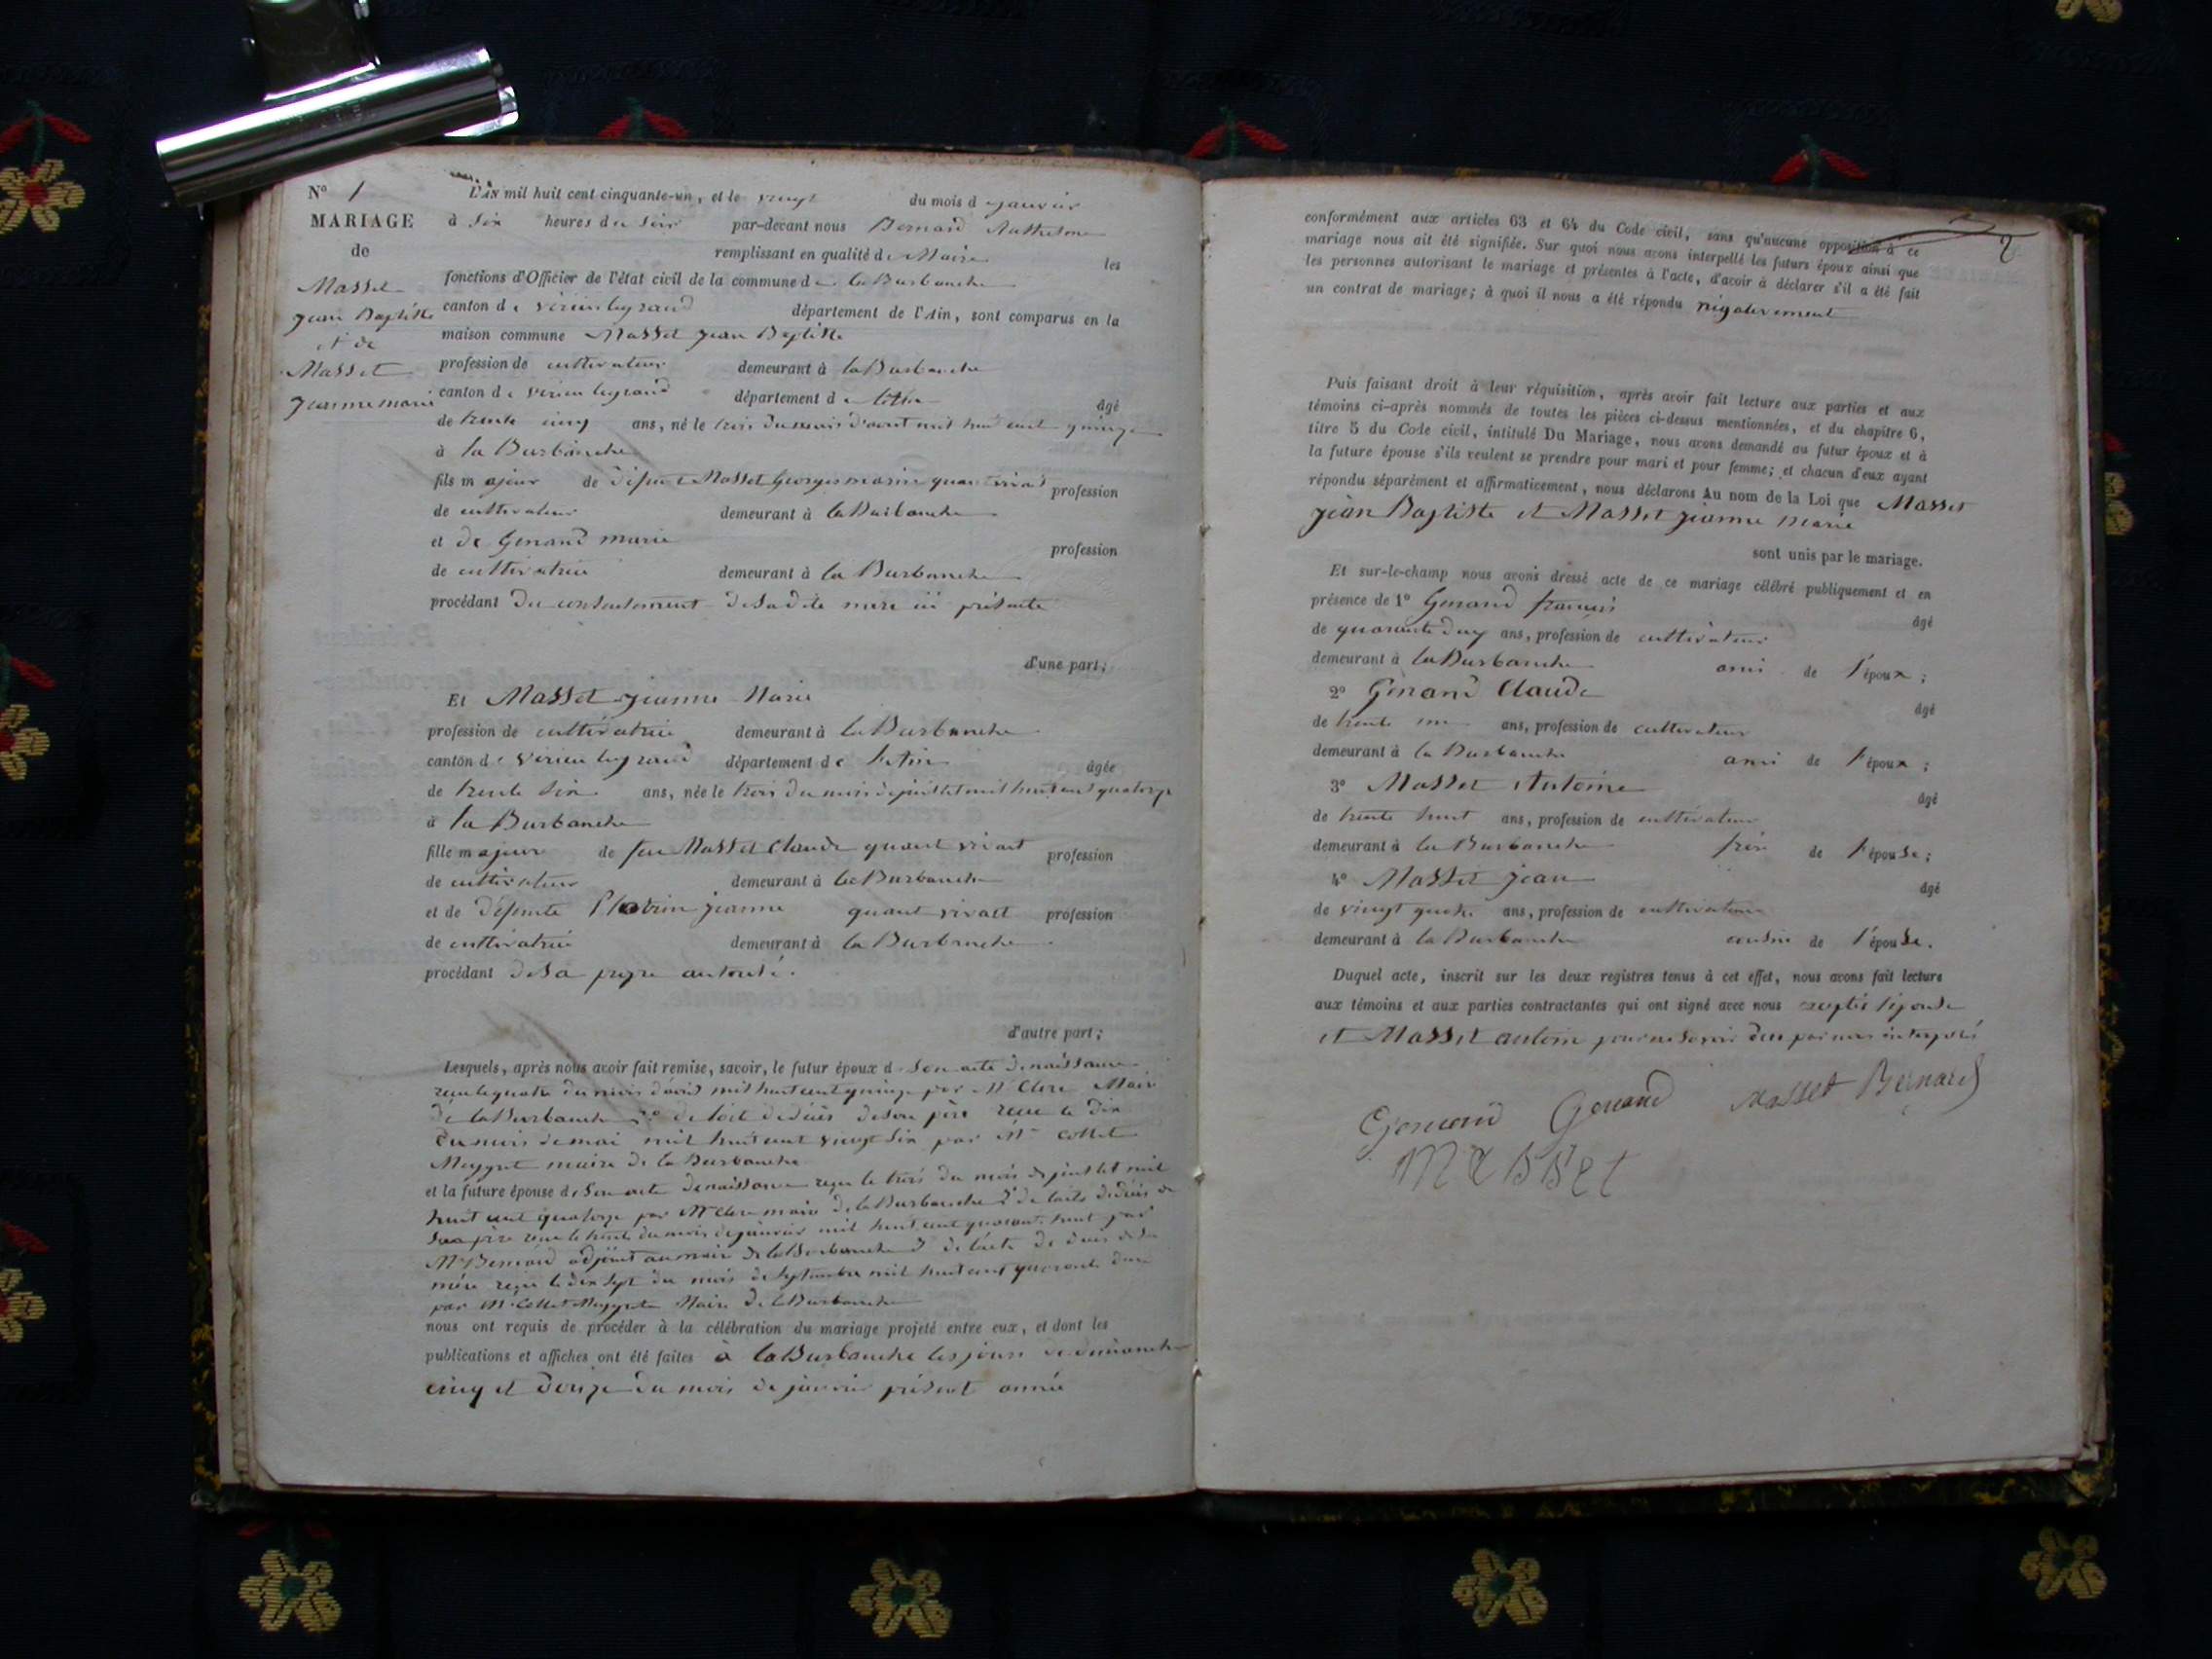 N° 1
MARIAGE
de
Masset
Jean Baptiste
et de
Masset
Jeanne marie
L'AN mil huit cent cinquante-un, et le vingt du mois d e janvier
à six heures du soir par-devant nous Bernard Anthelme
remplissant en qualité de Maire les
fonctions d'Officier de l'état civil de la commune de la Burbanche
canton de virieu legrand département de l'Ain, sont comparus en la
maison commune Masset Jean Baptiste
profession de cultivateur demeurant à la Burbanche
canton de virieu legrand département de l'Ain âgé
de trente cinq ans, né le trois du mois d'avril mil huit cent quinze
à la Burbanche
fils majeur de défunt Masset Georges marin quant vivait profession
de cultivateur demeurant à la Burbanche
et de Genand marie profession
de cultivatrice demeurant à la Burbanche
procédant du consentement de sadite mere ici présente
d'une part;
Et Masset Jeanne Marie
profession de cultivatrice demeurant à la Burbanche
canton de virieu legrand département de l'Ain âgée
de trente six ans, née le trois du mois de juillet mil huit cent quatorze
à la Burbanche
fille majeur de feu Masset Claude quant vivait profession
de cultivateur demeurant à la Burbanche
et de défunte Jeanne quant vivait profession
de cultivatrice demeurant à la Burbanche
procédant de sa propre autorité.
d'autre part;
Lesquels, après nous avoir fait remise, savoir, le futur époux de son acte de naissance
recu le quatre du mois d'avril mil huit cent quinze par Mr Clerc Maire
de la Burbanche 2° de l'acte de décès de son père recu le dix
du mois de mai mil huit cent vingt six par Mr Collet
Meygret maire de la Burbanche
et la future épouse de son acte de naissance reçu le trois du mois de juillet mil
huit cent quatorze par Mr Clerc maire de la Burbanche 2° de l'acte de décès de
son père recu le trente du mois de janvier mil huit cent quarante huit par
Mr Bernard adjoint au maire de la Burbanche 3° de l'acte de décès de sa
mère reçu le dix sept du mois de septembre mil huit cent quarante deux
par Mr Collet Meygret Maire de la Burbanche
nous ont requis de procéder à la célébration du mariage projeté entre eux, et dont les
publications et affiches ont été faites à la Burbanche les jours de dimanche
cinq et douze du mois de janvier présent année
2
conformément aux articles 63 et 64 du Code civil, sans qu'aucune opposition à ce
mariage nous ait été signifiée. Sur quoi nous avons interpellé les futurs époux ainsi que
les personnes autorisant le mariage et présentes à l'acte, d'avoir à déclarer s'il a été fait
un contrat de mariage; à quoi il nous a été répondu négativement
Puis faisant droit à leur réquisition, après avoir fait lecture aux parties et aux
témoins ci-après nommés de toutes les pièces ci-dessus mentionnées, et du chapitre 6,
titre 5 du Code civil, intitulé Du Mariage, nous avons demandé au futur époux et à
la future épouse s'ils veulent se prendre pour mari et pour femme; et chacun d'eux ayant
répondu séparément et affirmativement, nous déclarons Au nom de la Loi que Masset
jean Baptiste et Masset jeanne marie
sont unis par le mariage.
Et sur-le-champ nous avons dressé acte de ce mariage célébré publiquement et en
présence de 1° Genand françois âgé
de quarante deux ans, profession de cultivateur
demeurant à la Burbanche ami de l'époux;
2° Genand Claude âgé
de trente un ans, profession de cultivateur
demeurant à la Burbanche ami de l'époux;
3° Masset Antoine âgé
de trente huit ans, profession de cultivateur
demeurant à la Burbanche frère de l'épouse;
4° Masset Jean âgé
de vingt quatre ans, profession de cultivateur
demeurant à la Burbanche cousin de l'épouse.
Duquel acte, inscrit sur les deux registres tenus à cet effet, nous avons fait lecture
aux témoins et aux parties contractantes qui ont signé avec nous exceptés l'épouse
et Masset antoine pour ne savoir
Genand Genand Masset Bernard
Masset